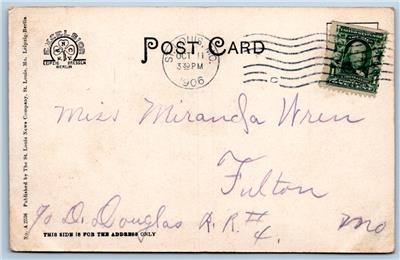 EXCELSIOR
LEIPZIG DRESDEN
BERLIN
POST CARD
ST. LOUIS, MO.
OCT 11
330PM
1906
C
No. A 2506 Published by The St. Louis News Company, St. Louis, Mo. Leipzig-Berlin
Miss Miranda Wren
Fulton
To D. Douglas A. R. # 4. Mo
THIS SIDE IS FOR THE ADDRESS ONLY